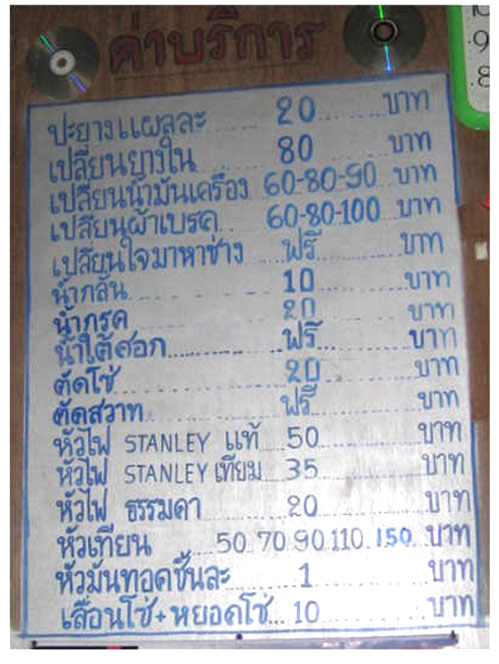 ค่าบริการ
ปะยางแผลละ ........ 20 ...... บาท
เปลี่ยนยางใน ...... 80 ...... บาท
เปลี่ยนน้ำมันเครื่อง 60-80-90 บาท
เปลี่ยนผ้าเบรค.. 60-80-100 บาท
เปลี่ยนใจมาหาช่าง ...ฟรี...... บาท
น้ำกลั่น ............ 10 ......... บาท
น้ำกรด ............. 20 ......... บาท
น้ำใต้ศอก........... ฟรี ........ บาท
ตัดโซ่ .............. 20 ........ บาท
ตัดสวาท ........... ฟรี ....... บาท
หัวไฟ STANLEY แท้ . 50 ...... บาท
หัวไฟ STANLEY เทียม . 35 ...... บาท
หัวไฟ ธรรมดา ....... 20 ...... บาท
หัวเทียน ...... 50.70.90.110.150.. บาท
หัวมันทอดชิ้นละ ...... 1 ........ บาท
เลื่อนโซ่+หยอดโซ่... 10 ......... บาท